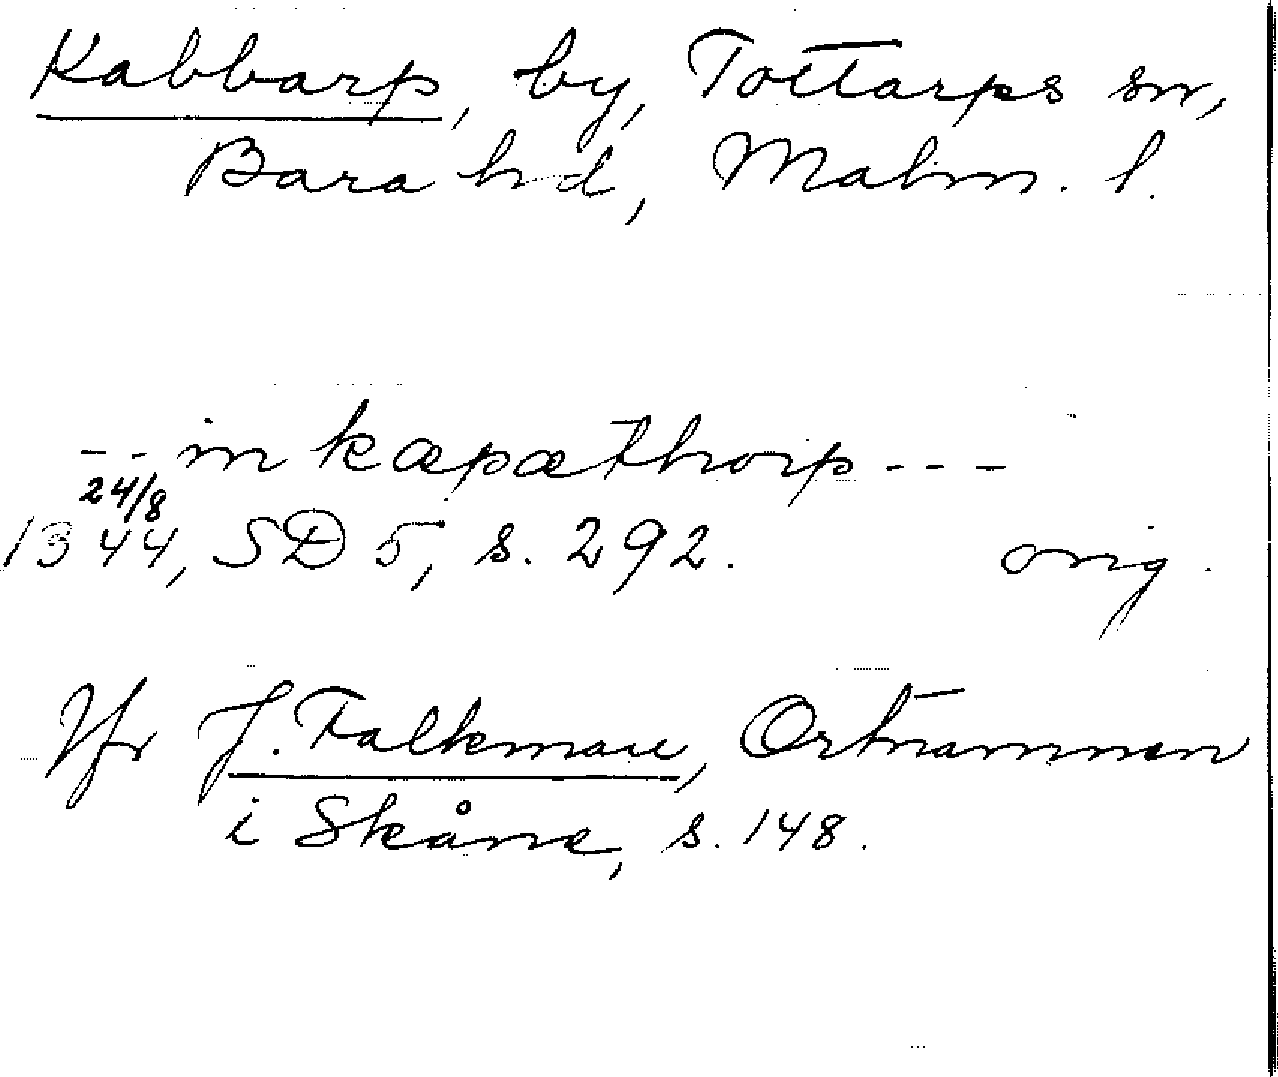 Kabbarp, by, Tottarps sn,
Bara hd, Malm. l.
- - in kæpæthorp - - -
24/8
1344, SD 5, s. 292. orig.
Jfr J. Falkman, Ortnamnen
i Skåne, s. 148.